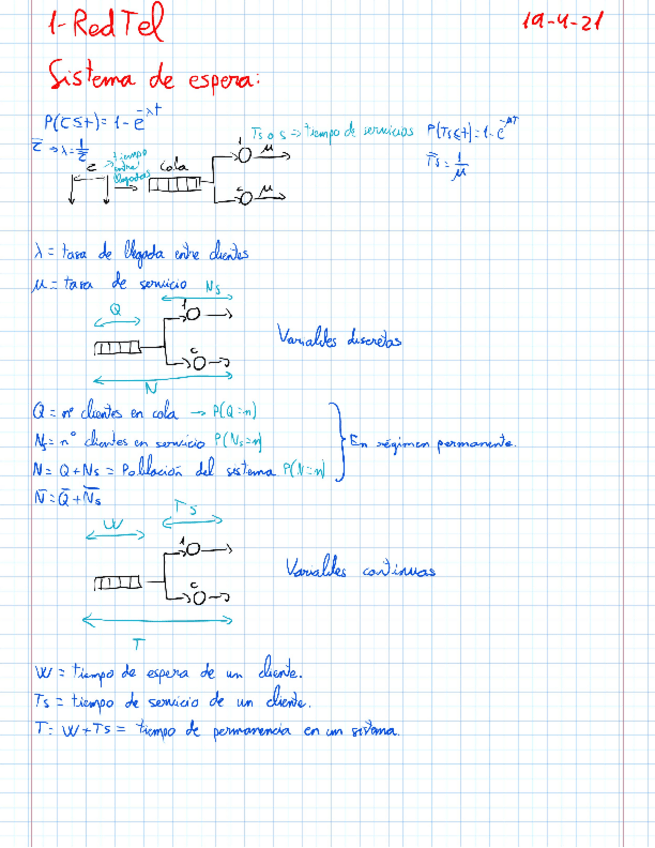 1-RedTel 19-4-21
Sistema de espera:
P(τ≤t)=1-e^-λt
τ̄ → λ=1/τ̄
τ → tiempo entre llegadas
Cola
1 μ
c μ
Ts o s => tiempo de servicios P(Ts≤t)=1-e^-μt
T̄s=1/μ
λ = tasa de llegada entre clientes
μ = tasa de servicio
Q Ns
1
c
N
Variables discretas
Q = nº clientes en cola → P(Q=n)
Ns = nº clientes en servicio P(Ns=n)
En régimen permanente.
N = Q+Ns = Población del sistema P(N=n)
N̄ = Q̄ + N̄s
W Ts
1
c
T
Variables continuas
W = tiempo de espera de un cliente.
Ts = tiempo de servicio de un cliente.
T = W+Ts = tiempo de permanencia en un sistema.